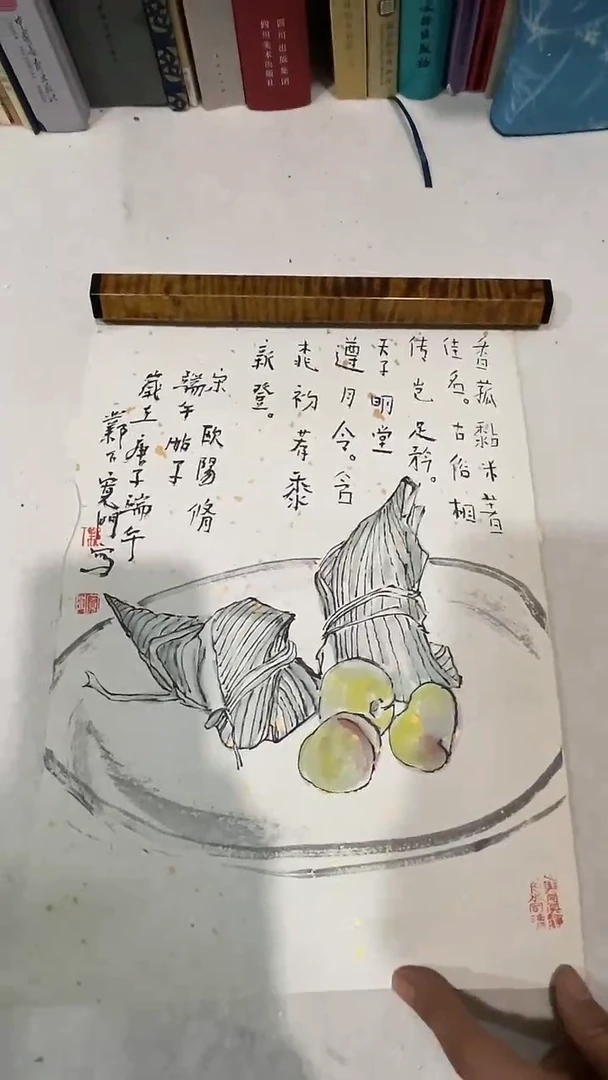 四川出版集团
四川美术出版社
香菰黏米著
佳名。古俗相
传岂足矜。
天子明堂
遵月令。含
桃初荐黍
新登。
宋欧陽脩
端午帖子
歲在庚子端午
鄴下寬写